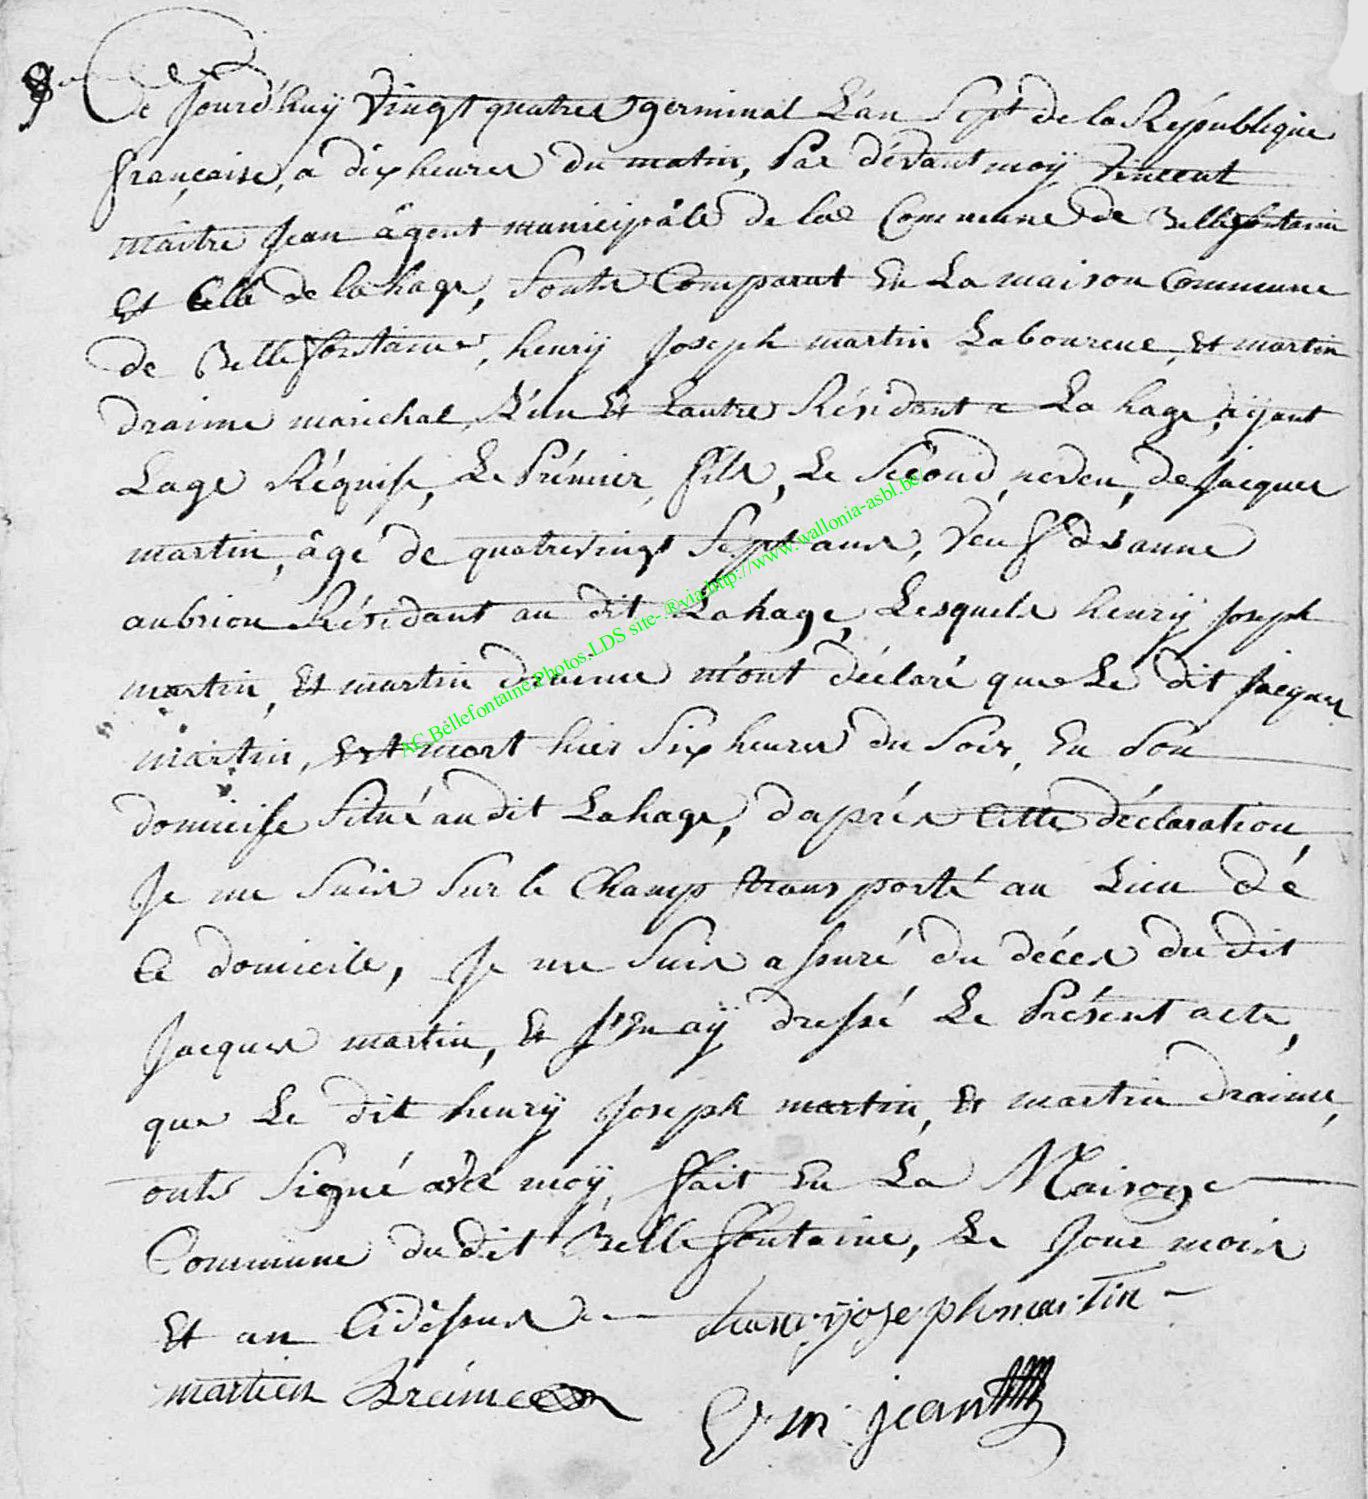 8e
Ce Jourd'huÿ vingt quatres germinal L'an Sept de la République
française, a dix heures du matin, Par dévant moÿ vincent
maitre Jean âgent municipâle de la Commune de Bellefontaine
Et Celle de la hage, Sonts Comparut En La maison Commune
de Bellefontaine, henrÿ Joseph martin Laboureur, Et martin
draime marichal, L'un Et L'autre Résidant a La hage, aÿant
Lage Réquise, Le Prémier, fils, Le Sécond, neveu, de Jacques
martin, âge de quatrevingt Sept ans, veuf d'anne
aubrion Résidant au dit Lahage, Lesquels henrÿ Joseph
martin, Et martin draime m'ont déclaré que Le dit Jacques
martin, Est mort hier Six heures du Soir, En Son
domicile Situé au dit Lahage, daprés Cette déclaration,
Je me Suis Sur le Champ transporté au Lieu dé
Ce domicile, Je me Suis assuré du décés du dit
Jacques martin, Et J'En aÿ dressé Le Présent acte,
que Le dit henrÿ Joseph martin, Et martin draime,
onts Signé avec moÿ, fait En La Maisone
Commune du dit Bellefontaine, Le Jour mois
Et an Cidéssus
henryjosephmartin
martien Dreime
V m jean
AC.Bellefontaine.Photos.LDS site-®via:http://www.wallonia-asbl.be/